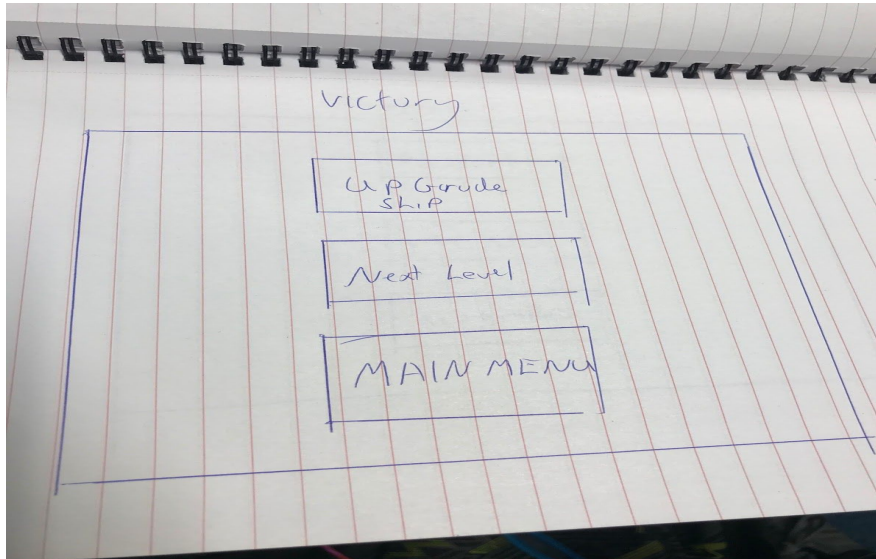 Victury
UpGrade
SHIP
Next Level
MAIN MENU